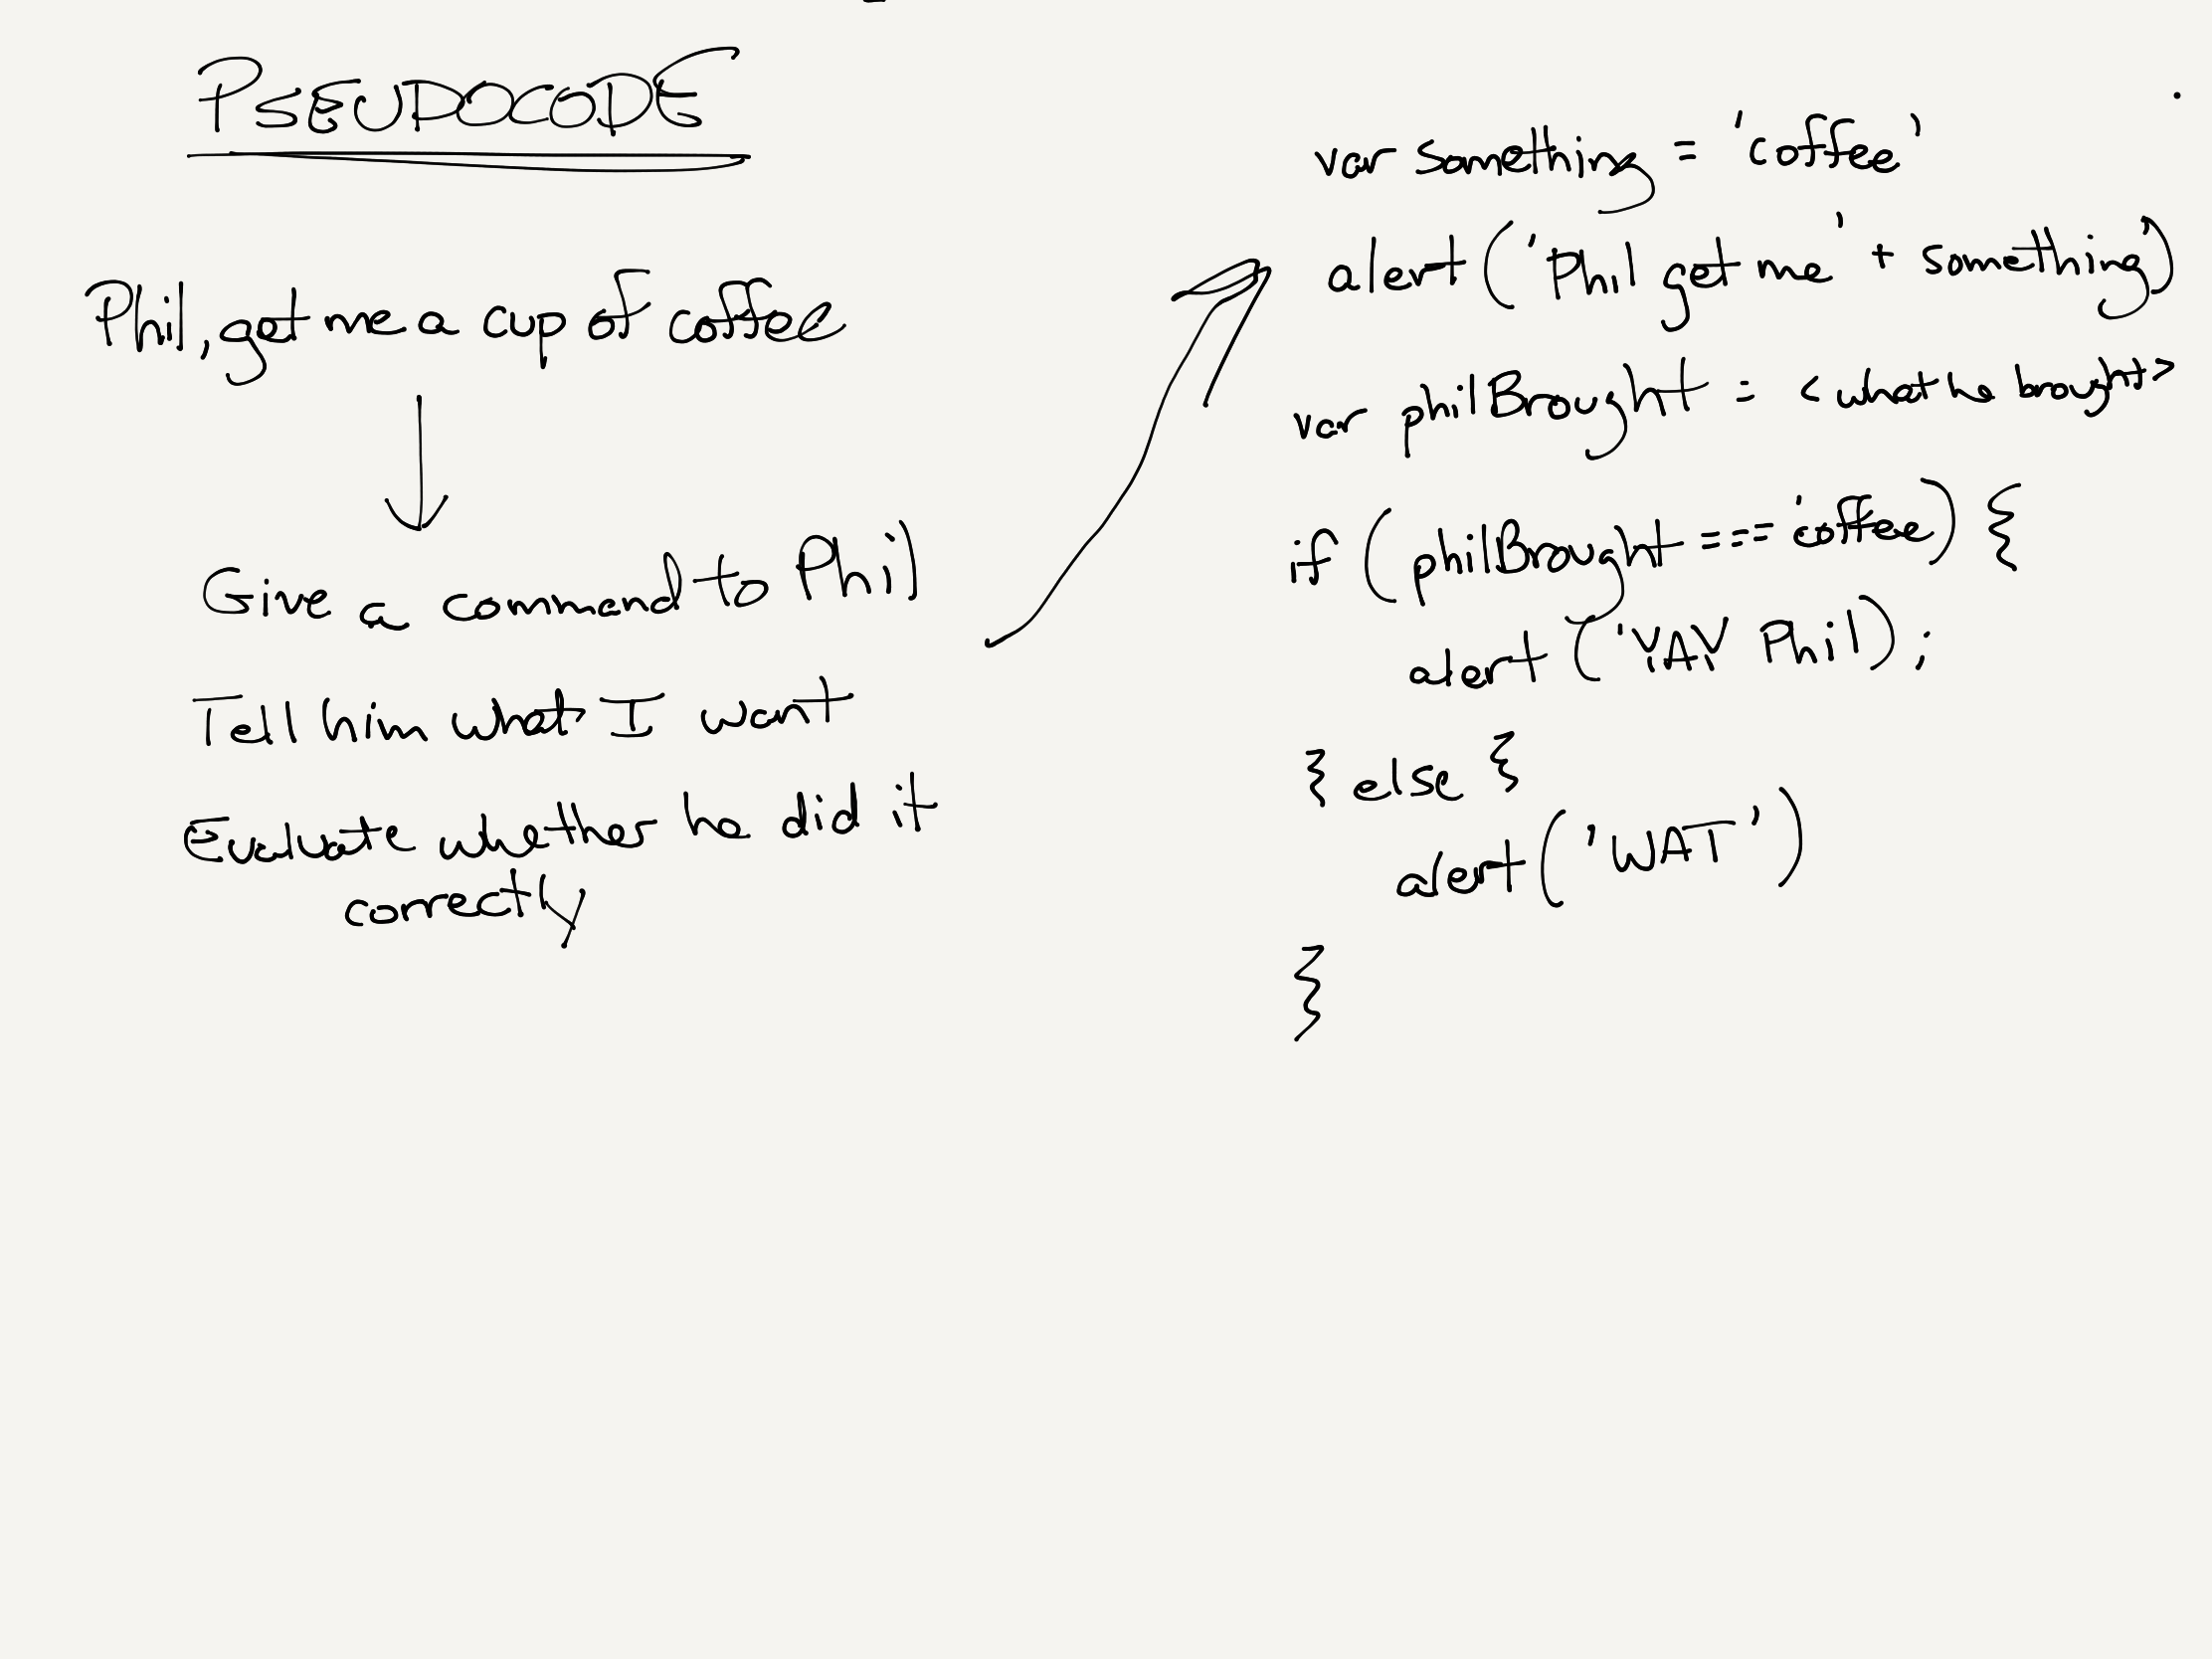 PSEUDOCODE
Phil, get me a cup of coffee
Give a command to Phil
Tell him what I want
Evaluate whether he did it
correctly
var something = 'coffee'
alert ('Phil get me' + something')
var philBrought = <what he brought>
if (philBrought === 'coffee) {
alert ('YAY Phil);
} else {
alert ('WAT')
}